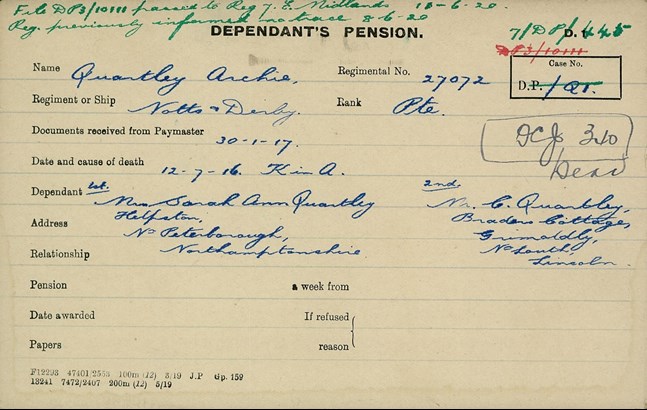 File DP3/10111 passed to Reg 7. E Midlands 18-6-20.
Reg. previously informed no trace 8-6-20
DEPENDANT'S PENSION.
7/DP/1.445
DP3/10111
Case No.
D.P. / QT.
Name Quartley Archie, Regimental No. 27072
Regiment or Ship Notts & Derby. Rank Pte.
Documents received from Paymaster 30-1-17.
DCJs 3.10
Dead
Date and cause of death 12-7-16. K in A.
Dependant 1st. Mrs Sarah Ann Quartley 2nd. Mr. C. Quartley,
Address Helpston, Braders Cottages,
Nr Peterborough, Grimoldby,
Relationship Northamptonshire Nr Louth,
Lincoln.
Pension a week from
Date awarded If refused
Papers reason
F12293 47401/2553 100m (12) 3/19 J.P Gp. 159
13241 7472/2407 200m (12) 5/19